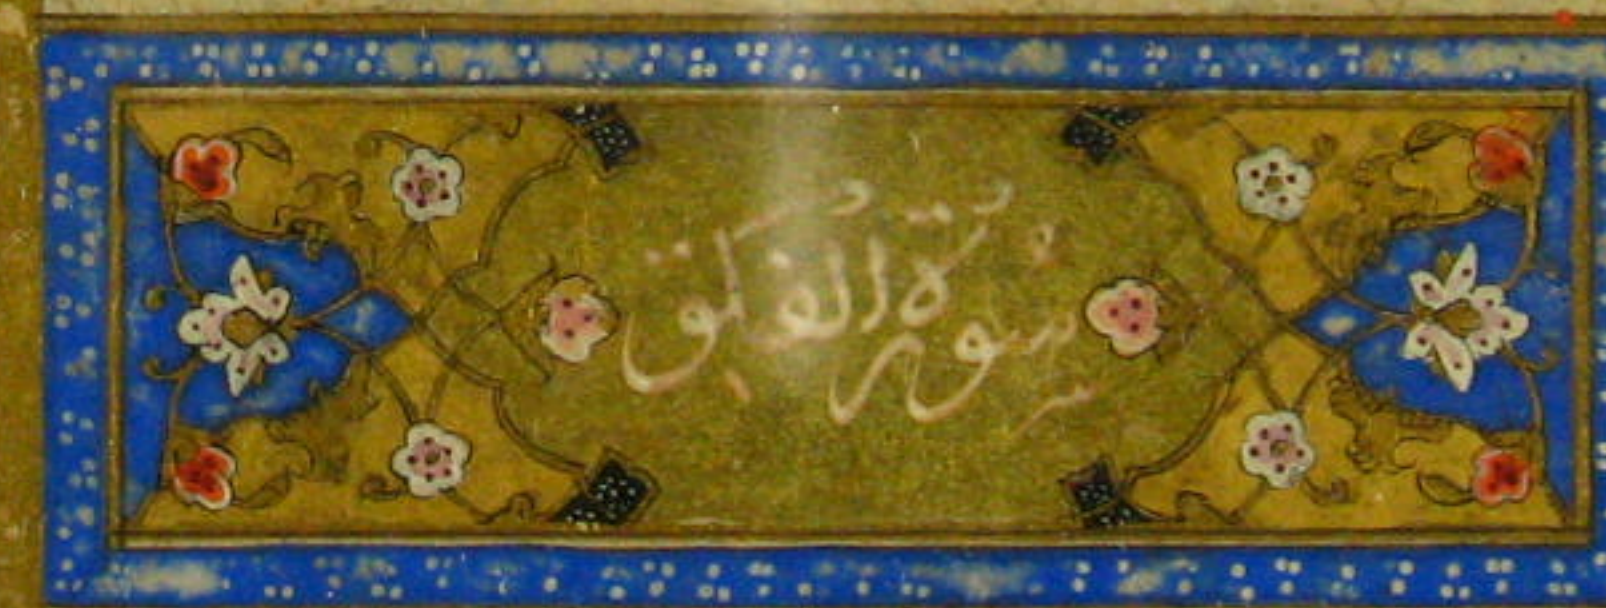 سُورَةُ الفَلَق